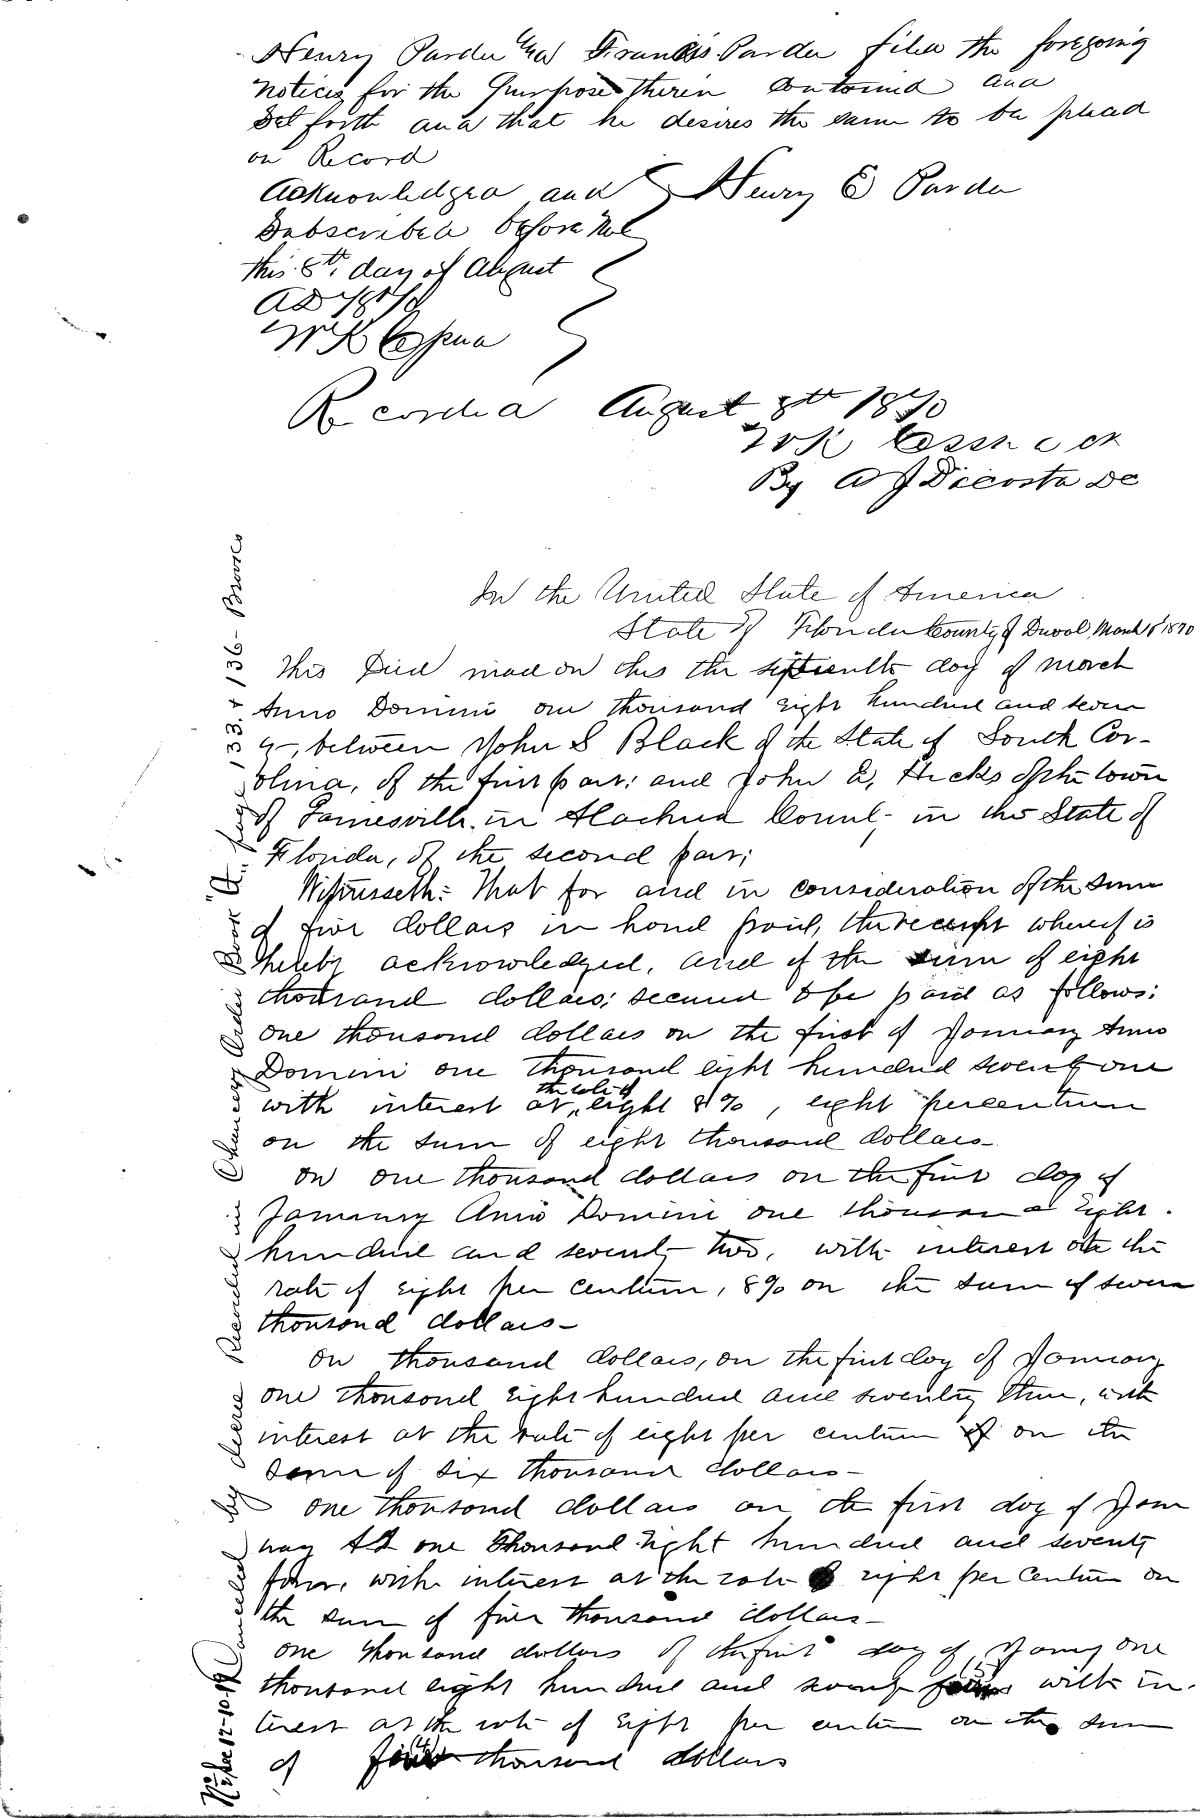 Henry Pardu and Francis Pardu filed the foregoing
notices for the Purpose therin Contained and
Set forth and that he desires the same to be placed
on Record
Acknowledged and Henry E Pardu
Subscribed before me
this 8th day of August
AD 1870
WK Cessna
Recorded August 8th 1870
WK Cessna Clk
By A J Dicosta DC
In the United State of America
State of Florida County of Duval, March 15 1870
This Deed mad on this the sixteenth day of march
Anno Domini one thousand eight hundred and seven
ty, between John S Black of the State of South Car-
olina, of the first part: and John E, Hicks of the town
of Gainesville. in Alachua County in the State of
Florida, of the second part;
Witnesseth: That for and in consideration of the sum
of five dollars in hand paid, the receipt whereof is
hereby acknowledged, and of the sum of eight
thousand dollars; secured to be paid as follows:
one thousand dollars on the first of January Anno
Domini one thousand eight hundred seventy one
with interest at the rate of eight 8%, eight percentum
on the sum of eight thousand dollars
on one thousand dollars on the first day of
January Anno Domini one thousand Eight
hundred and seventy two, with interest at the
rate of eight per centum, 8% on the sum of seven
thousand dollars-
on thousand dollars, on the first day of January
one thousand eight hundred and seventy three, with
interest at the rate of eight per centum of on the
sum of six thousand dollars-
one thousand dollars on the first day of Jan
uary AD one Thousand Eight hundred and seventy
four, with interest at the rate of eight per centum on
the sum of five thousand dollars-
one thousand dollars of the first day of, Janry one
thousand eight hundred and seventy (5) with in-
terest at the rate of Eight per centum on the sum
of four (4) thousand dollars
Cancelled by decree Recorded in Chancery Order Book "A" page 133 & 136- Brooks